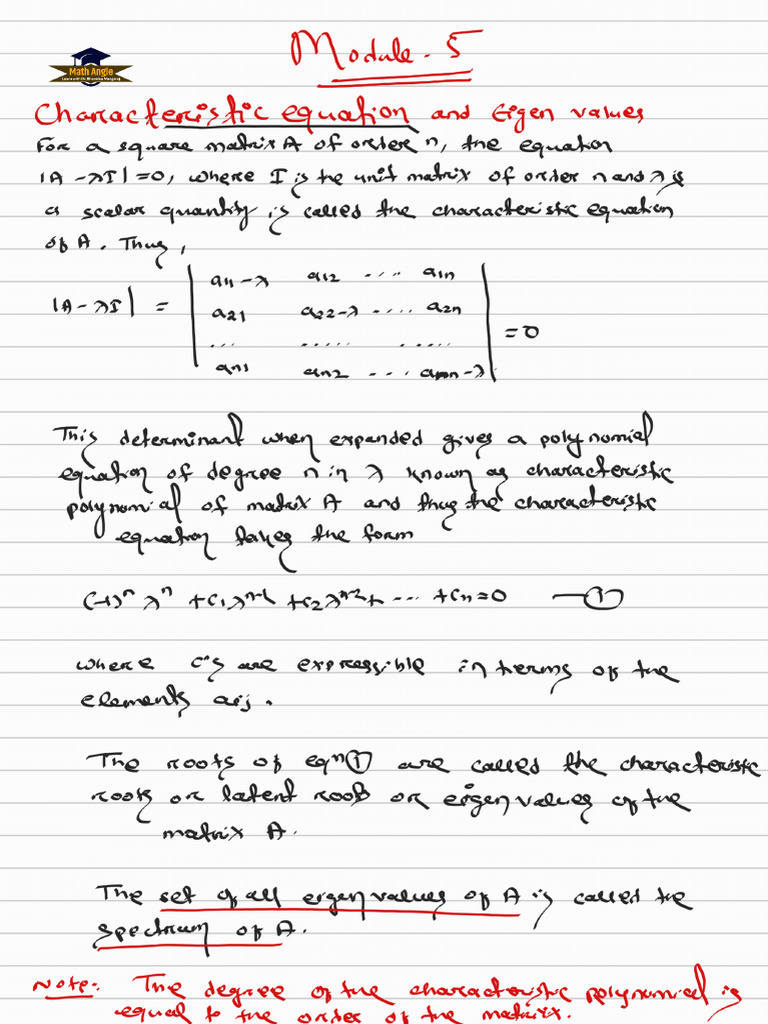 Module - 5
Math Angle
Characteristic equation and Eigen values
For a square matrix A of order n, the equation
|A - λI| = 0, where I is the unit matrix of order n and λ is
a scalar quantity is called the characteristic equation
of A. Thus,
a11-λ a12 .... a1n
|A - λI| = a21 a22-λ .... a2n
... ..... ..... = 0
an1 an2 ... ann-λ
This determinant when expanded gives a polynomial
equation of degree n in λ known as characteristic
polynomial of matrix A and thus the characteristic
equation takes the form
(-1)ⁿ λⁿ + c1 λⁿ⁻¹ + c2 λⁿ⁻² + ... + cn = 0 — ①
where c's are expressible in terms of the
elements aij.
The roots of eqⁿ ① are called the characteristic
roots or latent roots or eigen values of the
matrix A.
The set of all eigen values of A is called the
spectrum of A.
Note:- The degree of the characteristic polynomial is
equal to the order of the matrix.